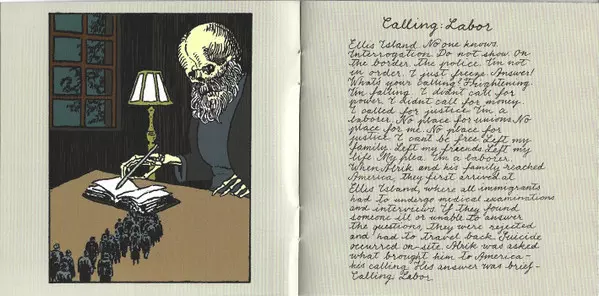 Calling: Labor
Ellis Island. No one knows
Interrogation. Do not show. On
the border. the police. I'm not
in order. I just freeze. Answer!
What's your calling? Frightening
I'm falling. I didn't call for
power. I didn't call for money.
I called for justice. I'm a
laborer. No place for unions. No
place for me. No place for
justice. I can't be free. Left my
family. Left my friends. Left my
life. My plea. I'm a laborer.
When Alrik and his family reached
America, they first arrived at
Ellis Island, where all immigrants
had to undergo medical examinations
and interviews. If they found
someone ill or unable to answer
the questions, they were rejected
and had to travel back. Suicide
occurred on-site. Alrik was asked
what brought him to America -
his calling. His answer was brief -
Calling Labor.